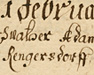 1 Februar
Swather Adam
Rengersdorff